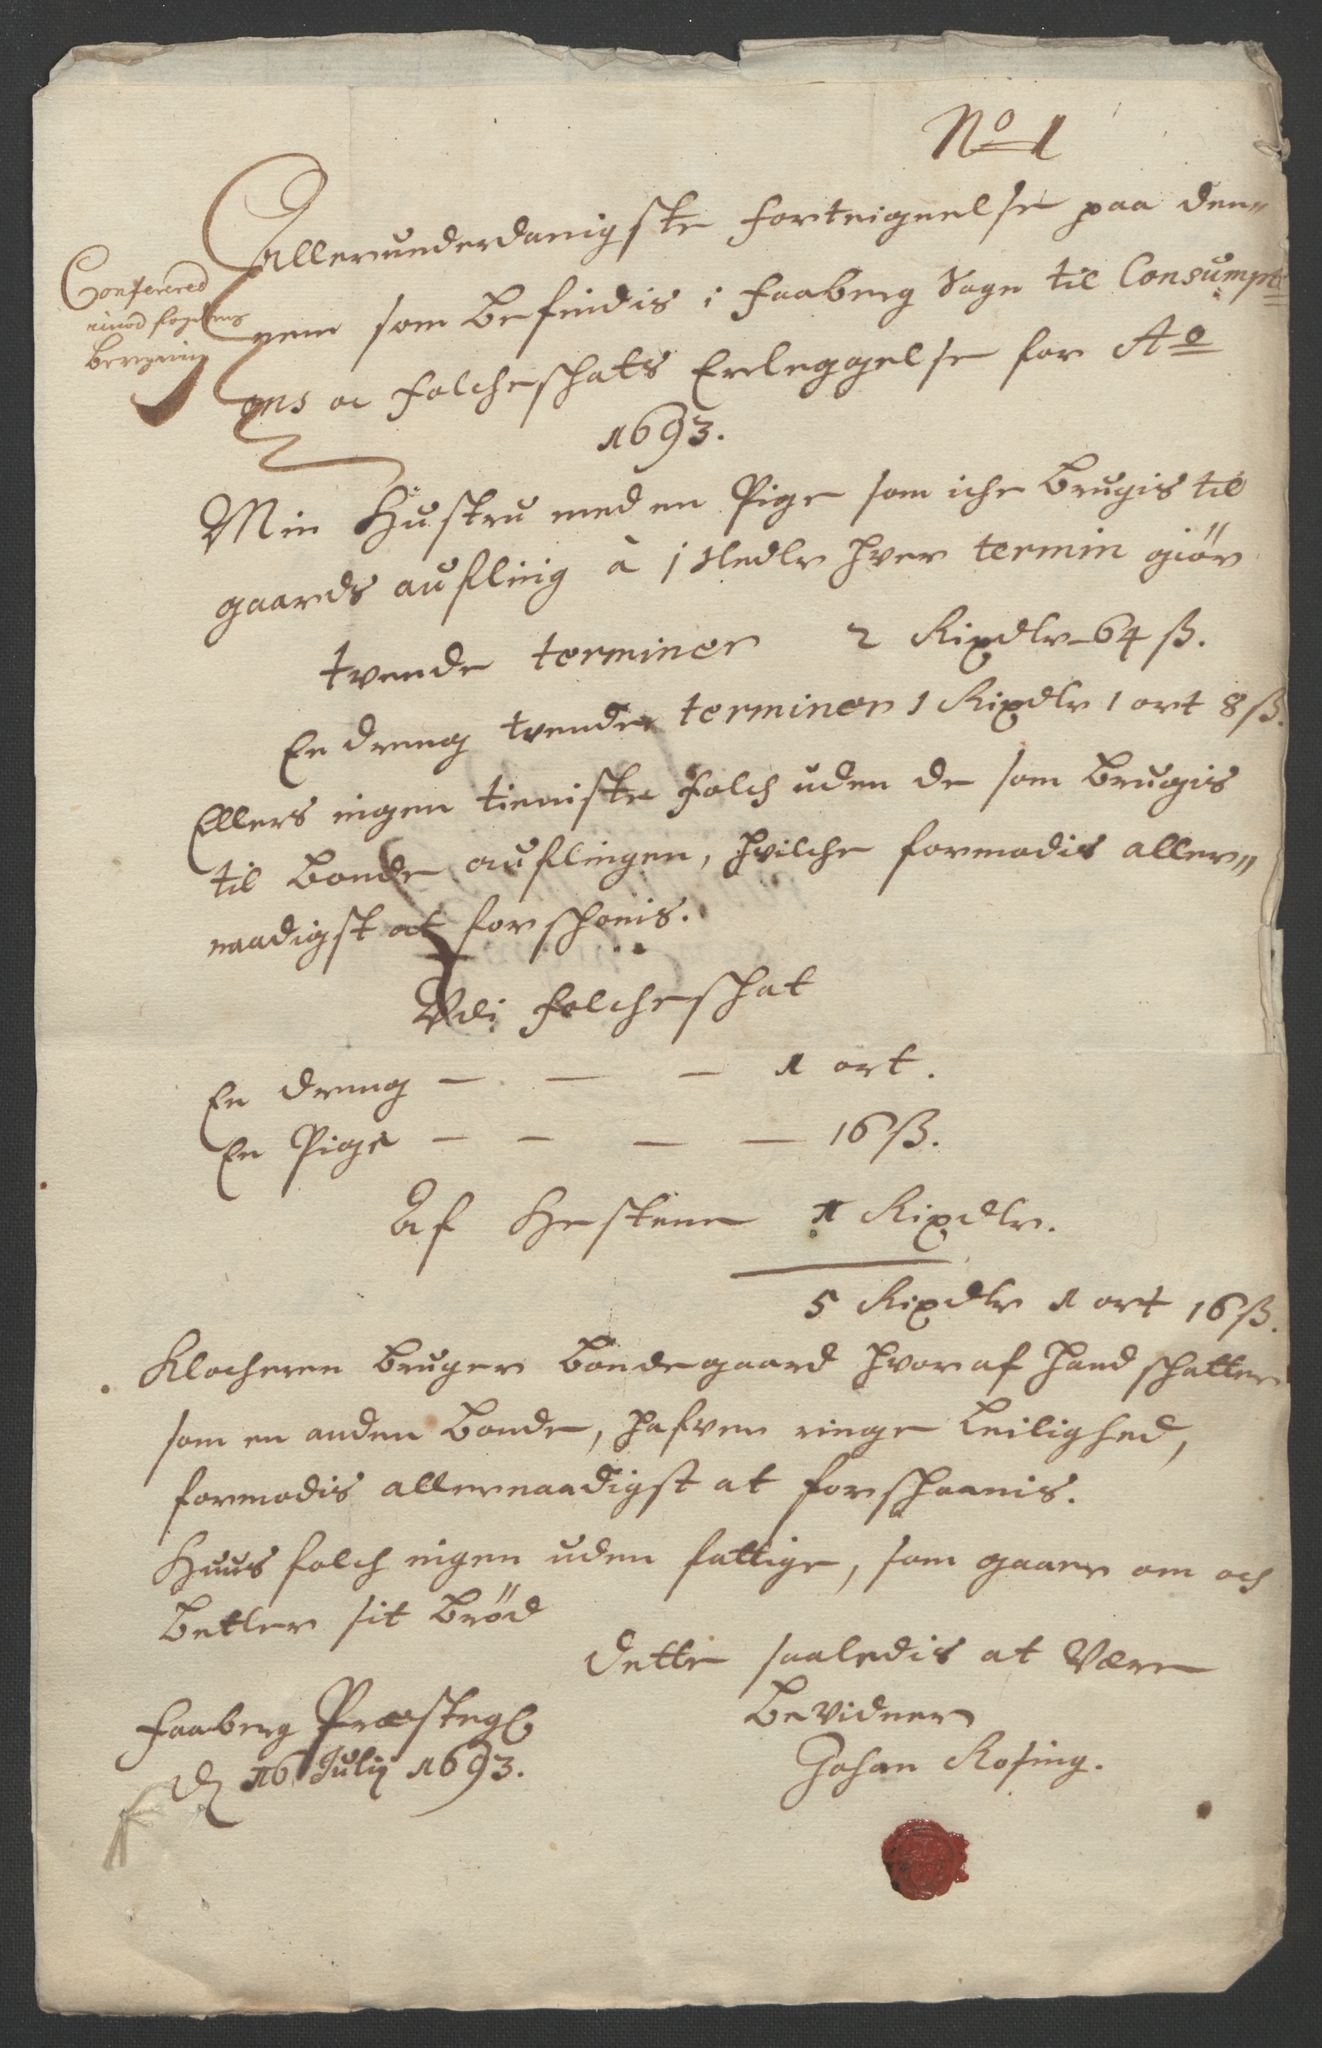 No 1
Allerunderdanigste forteignelse paa den„
nem som befindis i Faaberg Sogn til Consumpti
ons oc folcheschats Erleggelse for Ao
1693.
Conferered
imod fogdens
beregning
Min Hustru med en Pige som iche brugis til
gaards aufling à 1 Sledlr hver termin giør
tvende terminer 2 Rixdlr 64 ß.
En dreng tvende terminer 1 Rixdlr 1 ort 8 ß.
Ellers ingen tieniste folch uden de som brugis
til bonde auflingen, hvilche formodis aller„
naadigst at forschonis.
Udi folcheschat
En dreng — — — 1 ort.
En Pige — — — — 16 ß.
Af Hestene 1 Rixdlr.
5 Rixdlr 1 ort 16 ß.
Klocheren bruger bondegaard hvoraf hand schatter
som en anden bonde, hafver ringe leilighed,
formodis allernaadigst at forschaanis.
Huus folch ingen uden fattige, som gaar om och
betler sit brød
Dette saaledis at være
bevidner
Johan Rosing.
Faaberg Præsteg
d 16 Julij 1693.